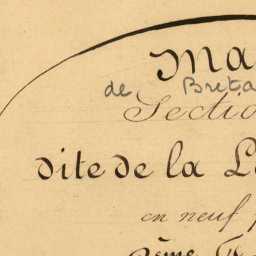 Ma
de Breta
Sectio
dite de la L
en neuf
2ème